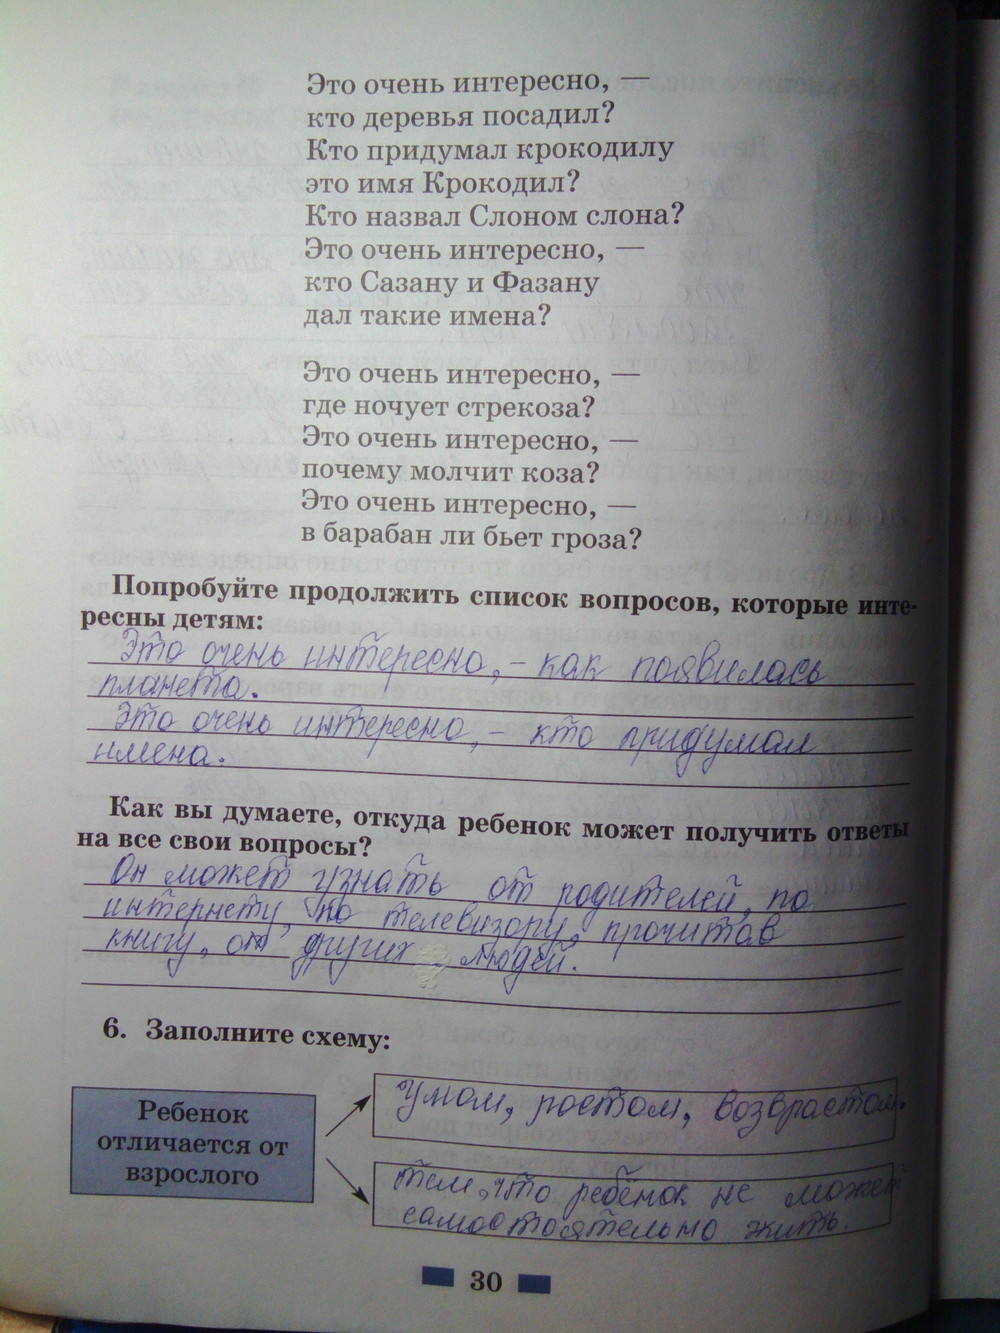 Это очень интересно, —
кто деревья посадил?
Кто придумал крокодилу
это имя Крокодил?
Кто назвал Слоном слона?
Это очень интересно, —
кто Сазану и Фазану
дал такие имена?
Это очень интересно, —
где ночует стрекоза?
Это очень интересно, —
почему молчит коза?
Это очень интересно, —
в барабан ли бьет гроза?
Попробуйте продолжить список вопросов, которые инте-
ресны детям:
Это очень интересно, – как появилась
планета.
Это очень интересно, – кто придумал
имена.
Как вы думаете, откуда ребенок может получить ответы
на все свои вопросы?
Он может узнать от родителей, по
интернету, по телевизору, прочитав
книгу, от других людей.
6. Заполните схему:
Ребенок
отличается от
взрослого
Умом, ростом, возврастом.
тем, что ребёнок не может
самостоятельно жить.
30